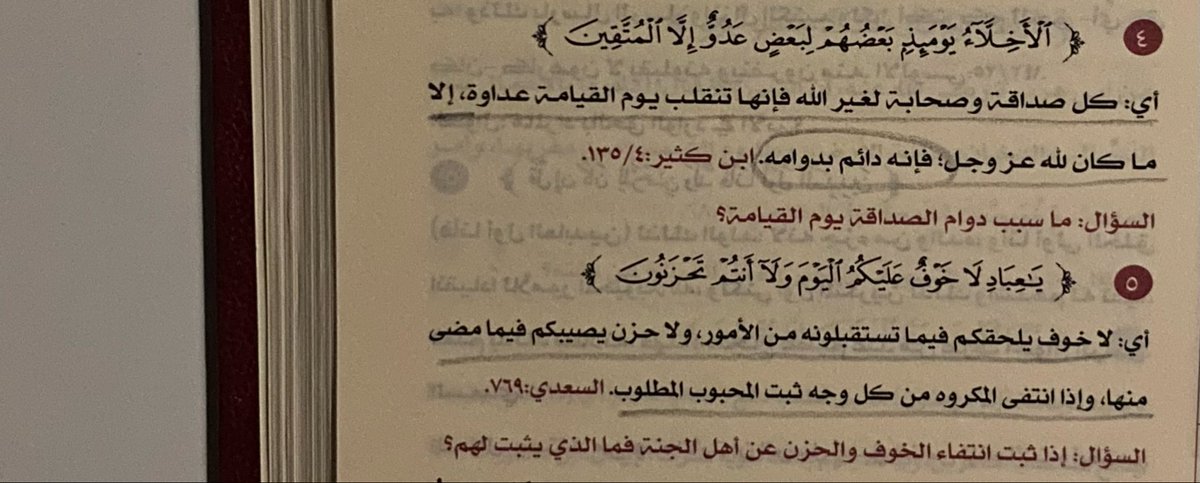 ٤ ﴿ ٱلْأَخِلَّآءُ يَوْمَئِذٍۭ بَعْضُهُمْ لِبَعْضٍ عَدُوٌّ إِلَّا ٱلْمُتَّقِينَ ﴾
أي: كل صداقة وصحابة لغير الله فإنها تنقلب يوم القيامة عداوة، إلا
ما كان لله عز وجل؛ فإنه دائم بدوامه. ابن كثير:٤/١٣٥.
السؤال: ما سبب دوام الصداقة يوم القيامة؟
٥ ﴿ يَٰعِبَادِ لَا خَوْفٌ عَلَيْكُمُ ٱلْيَوْمَ وَلَآ أَنتُمْ تَحْزَنُونَ ﴾
أي: لا خوف يلحقكم فيما تستقبلونه من الأمور، ولا حزن يصيبكم فيما مضى
منها، وإذا انتفى المكروه من كل وجه ثبت المحبوب المطلوب. السعدي:٧٦٩.
السؤال: إذا ثبت انتفاء الخوف والحزن عن أهل الجنة فما الذي يثبت لهم؟